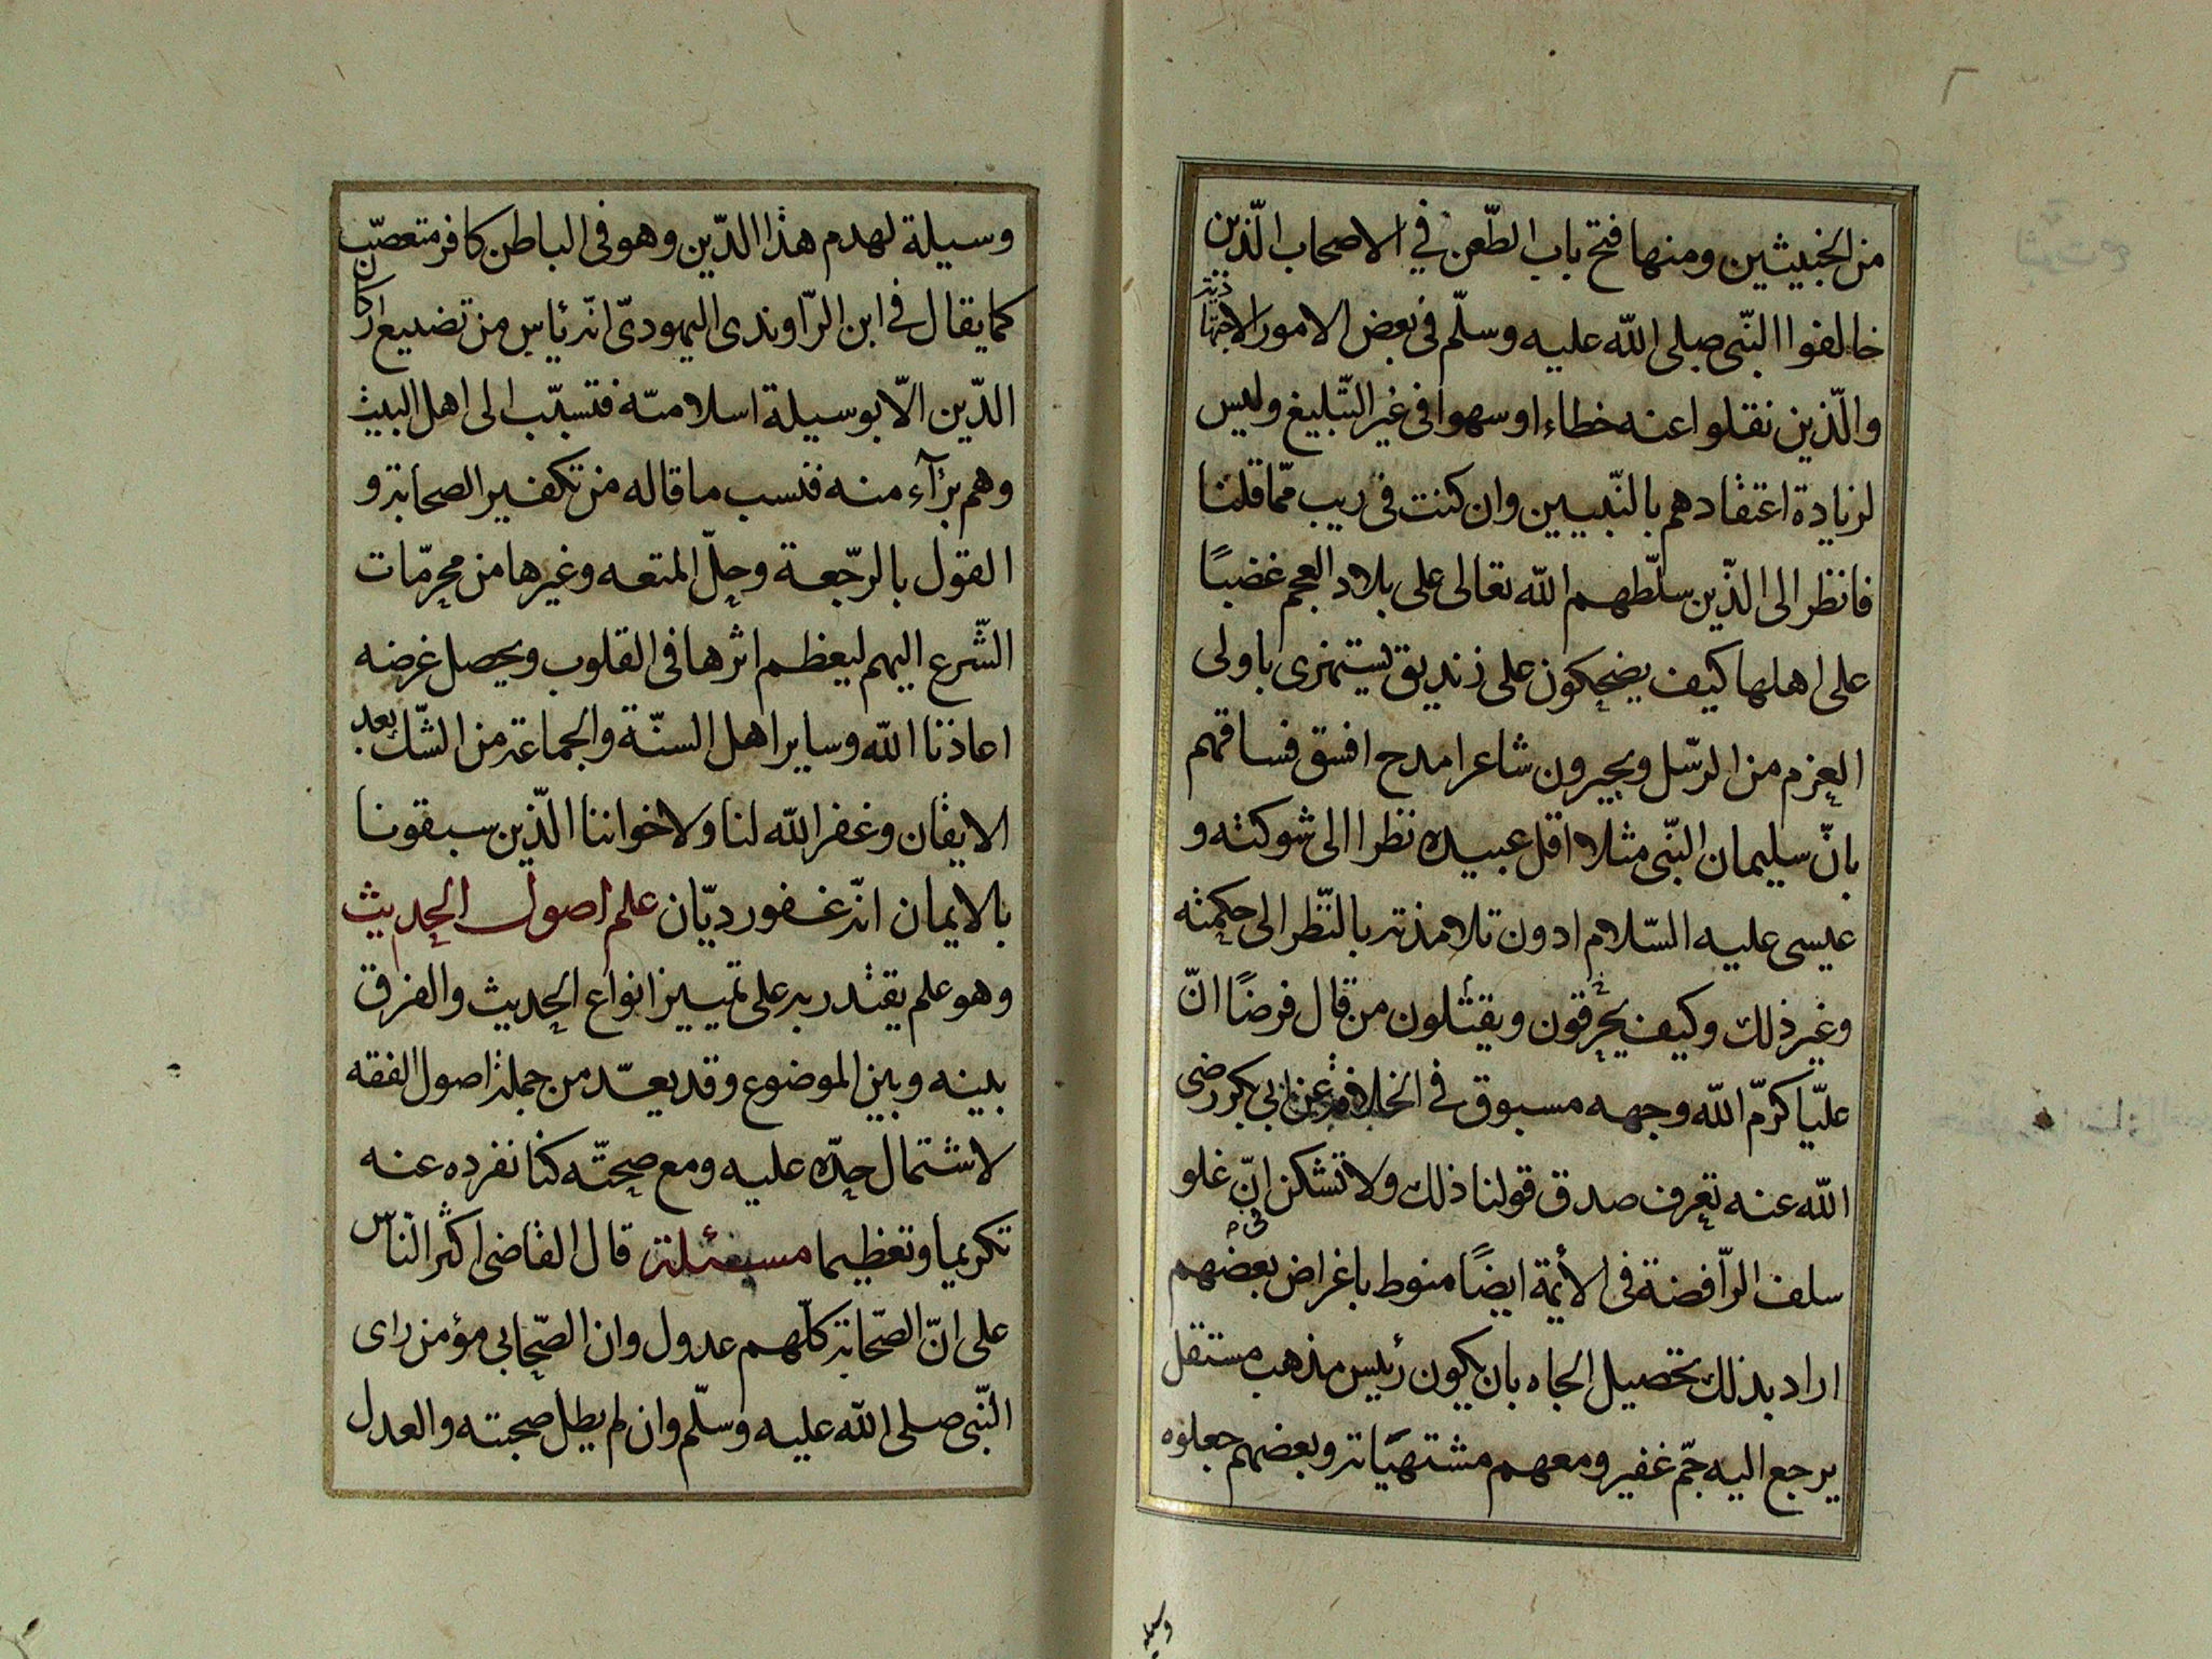 من الخبيثين ومنها فتح باب الطّعن في الاصحاب الّذين
خالفوا النّبى صلى اللّه عليه وسلّم فى بعض الامور الاجتهادية
والّذين نقلوا عنه خطاء او سهوا فى غير التّبليغ وليس
لزيادة اعتقادهم بالنّبيين وان كنت فى ريب ممّا قلنا
فانظر الى الذّين سلّطهم اللّه تعالى على بلاد العجم غضبًا
على اهلها كيف يضحكون على زنديق يستهزى باولى
العزم من الرّسل ويجيرون شاعرا مدح افسق فساقهم
بانّ سليمان النّبى مثلا اقل عبيده نظرا الى شوكته و
عيسى عليه السّلام ادون تلامذته بالنّظر الى حكمته
وغير ذلك وكيف يحرقون ويقتلون من قال فرضًا انّ
عليّا كرّم اللّه وجهه مسبوق في الخلافة عن ابي بكر رضى
اللّه عنه تعرف صدق قولنا ذلك ولا تشكن انّ غلو
سلف الرّافضة فى الأئمة ايضًا منوط باغراض بعضهم
اراد بذلك تحصيل الجاه بان يكون رئيس مذهب مستقل
يرجع اليه جمّ غفير ومعهم مشتهيّاته وبعضهم جعلوه
وسيله
وسيلة لهدم هذا الدّين وهو فى الباطن كافر متعصّب
كما يقال في ابن الرّاوندى اليهودىّ انّه يأس من تضييع اركان
الدّين الّا بوسيلة اسلاميّة فتسبّب الى اهل البيت
وهم برآء منه فنسب ما قاله من تكفير الصحابة و
القول بالرّجعة وحلّ المتعه وغيرها من محرمّات
الشّرع اليهم ليعظم اثرها فى القلوب ويحصل غرضه
اعاذنا اللّه وساير اهل السنّة والجماعة من الشّك بعد
الايقان وغفر اللّه لنا ولاخواننا الّذين سبقونا
بالايمان انّه غفور ديّان علم اصول الحديث
وهو علم يقتدر به على تمييز انواع الحديث والفرق
بينه وبين الموضوع وقد يعدّ من جملة اصول الفقه
لاشتمال حدّه عليه ومع صحتّه كنا نفرده عنه
تكريما وتعظيما مسئلة قال القاضى اكثر النّاس
على انّ الصّحابة كلّهم عدول وان الصّحابي مؤمن راى
النّبى صلى اللّه عليه وسلّم وان لم يطل صحبته والعدل